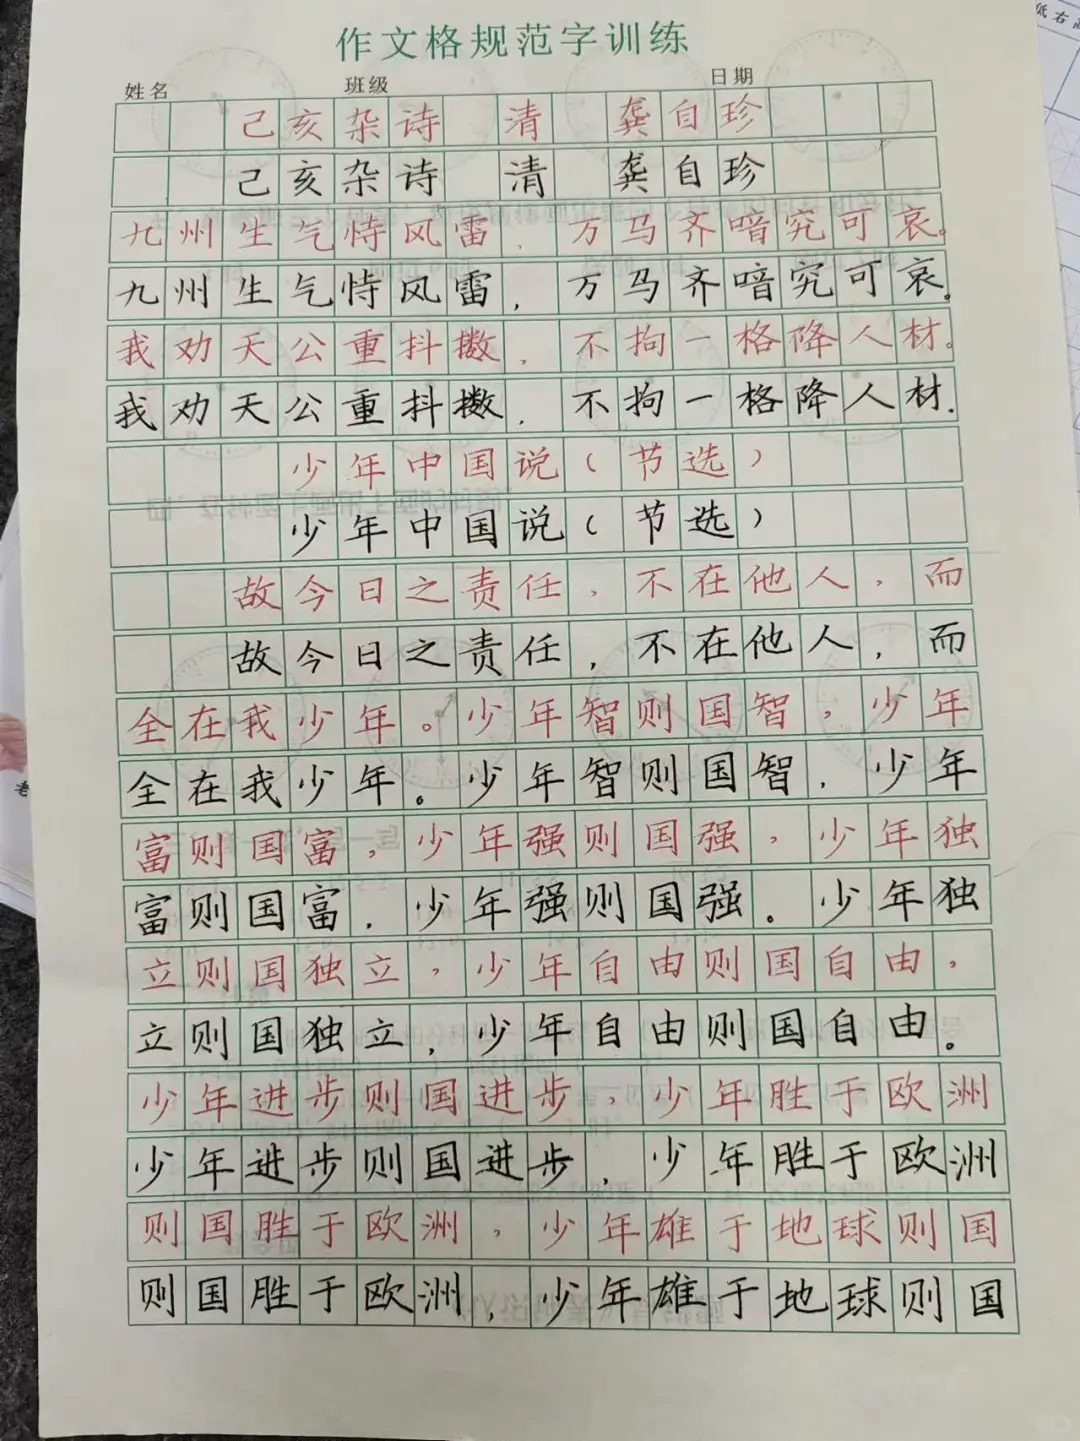 作文格规范字训练
姓名 班级 日期
己亥杂诗 清 龚自珍
己亥杂诗 清 龚自珍
九州生气恃风雷，万马齐喑究可哀。
九州生气恃风雷，万马齐喑究可哀。
我劝天公重抖擞，不拘一格降人材。
我劝天公重抖擞，不拘一格降人材.
少年中国说（节选）
少年中国说（节选）
故今日之责任，不在他人，而
故今日之责任，不在他人，而
全在我少年。少年智则国智，少年
全在我少年。少年智则国智，少年
富则国富，少年强则国强，少年独
富则国富，少年强则国强。少年独
立则国独立，少年自由则国自由，
立则国独立，少年自由则国自由。
少年进步则国进步，少年胜于欧洲
少年进步则国进步，少年胜于欧洲
则国胜于欧洲，少年雄于地球则国
则国胜于欧洲，少年雄于地球则国